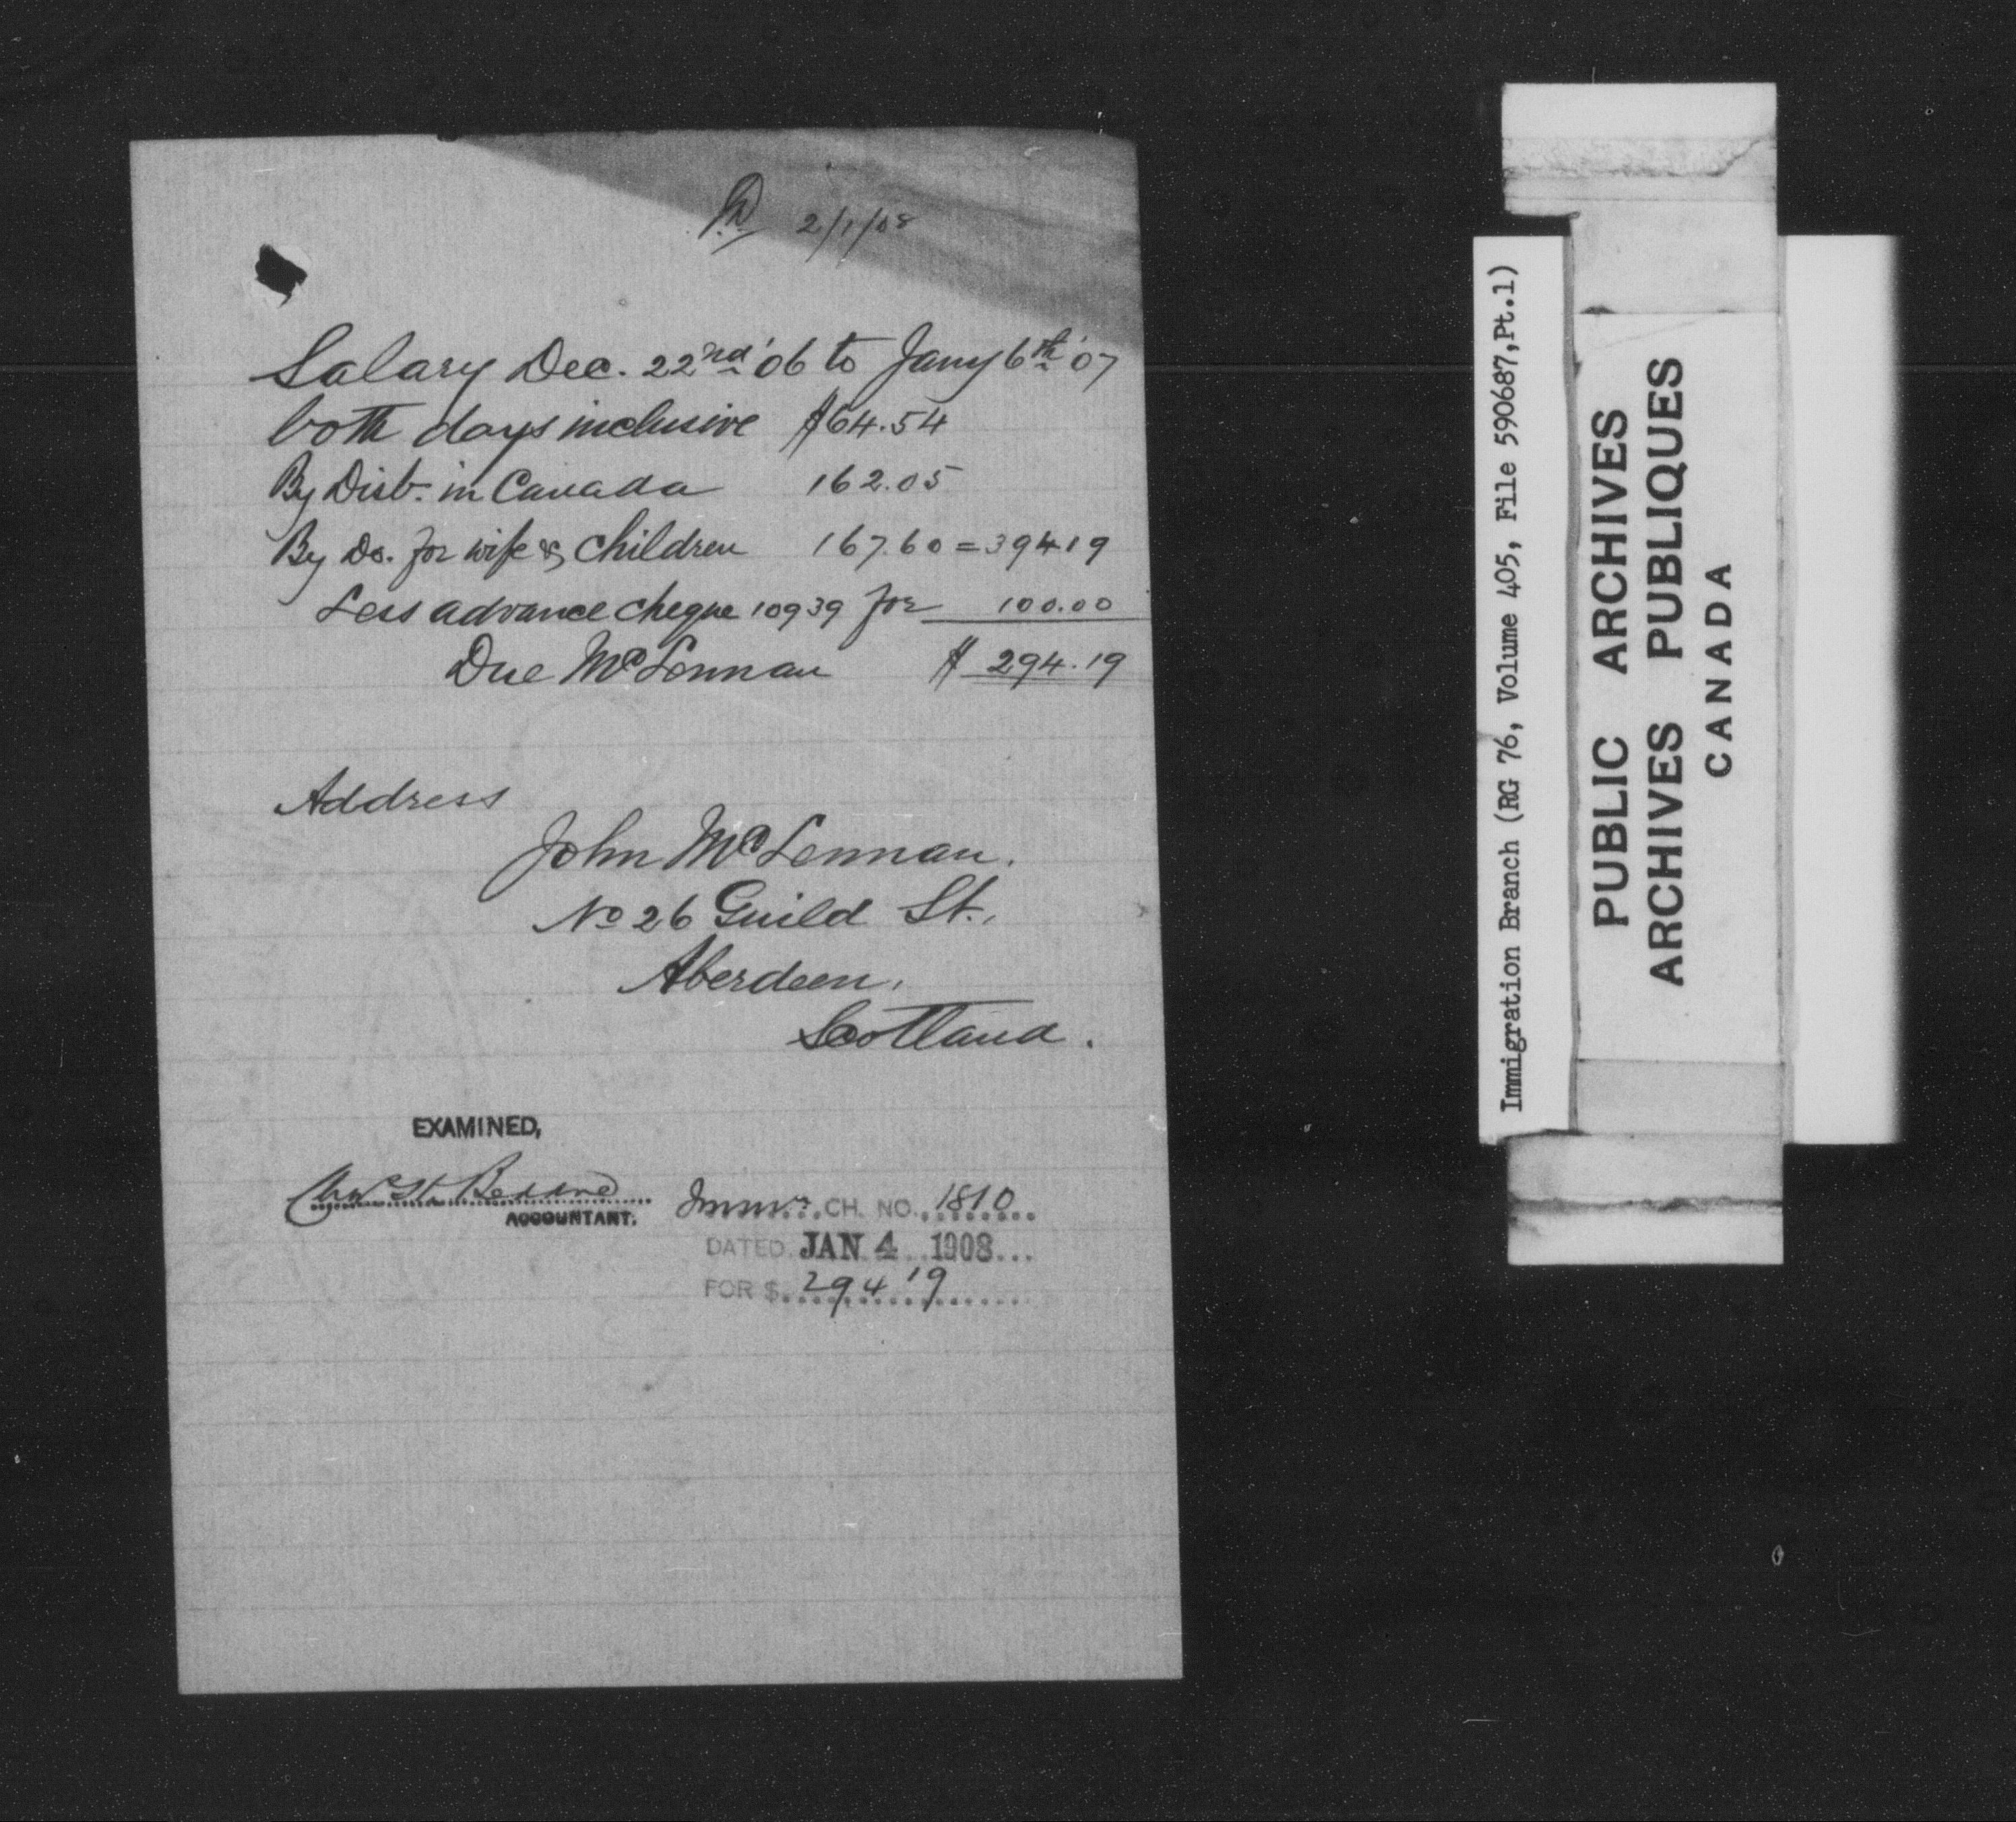 2/1/08
Salary Dec. 22nd '06 to Jany 6th '07
both days inclusive $64.54
By Disb. in Canada 162.05
By Do. for wife & Children 167.60 = 394 19
Less advance cheque 10939 for 100.00
Due McLennan $ 294.19
Address
John McLennan.
No 26 Guild St.,
Aberdeen,
Scotland.
EXAMINED,
ACCOUNTANT.
Immn. CH. NO. 1810
DATED JAN 4 1908
FOR $ 294 19
Immigration Branch (RG 76, Volume 405, File 590687,Pt.1)
PUBLIC ARCHIVES
ARCHIVES PUBLIQUES
CANADA